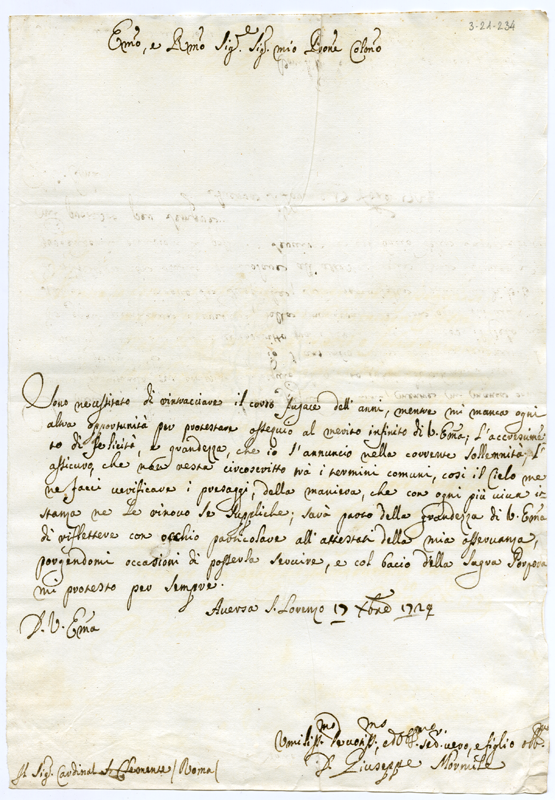 3-21-234
Emo, e Rmo Sig.e Sig. mio Prone Colmo
Sono necessitato di rintracciare il corso fugace dell'anni, mentre mi manca ogni
altra opportunità per protestare ossequio al merito infinito di V. Ema; l'accrescime
to di felicità, e grandezza, che io l'annuncio nella corrente sollennità, l'
assicuro, che non resta circoscritto trà i termini comuni, così il Cielo me
ne facci verificare i presaggi, della maniera, che con ogni più viva in
stanza ne Le rinovo le suppliche; sarà parto della grandezza di V. Ema
di riflettere con occhio particolare all'attestati della mia osservanza,
porgendomi occasioni di poterla servire, e col bacio della Sagra Porpora
mi protesto per sempre.
Aversa S. Lorenzo 17 Xbre 1724
D. V. Ema
Umiliss.mo Devotiss.mo ed Obb. Ser. vero, e figlio obb.mo
D. Giuseppe Mormile
Sig. Cardinal S. Clemente / Roma /